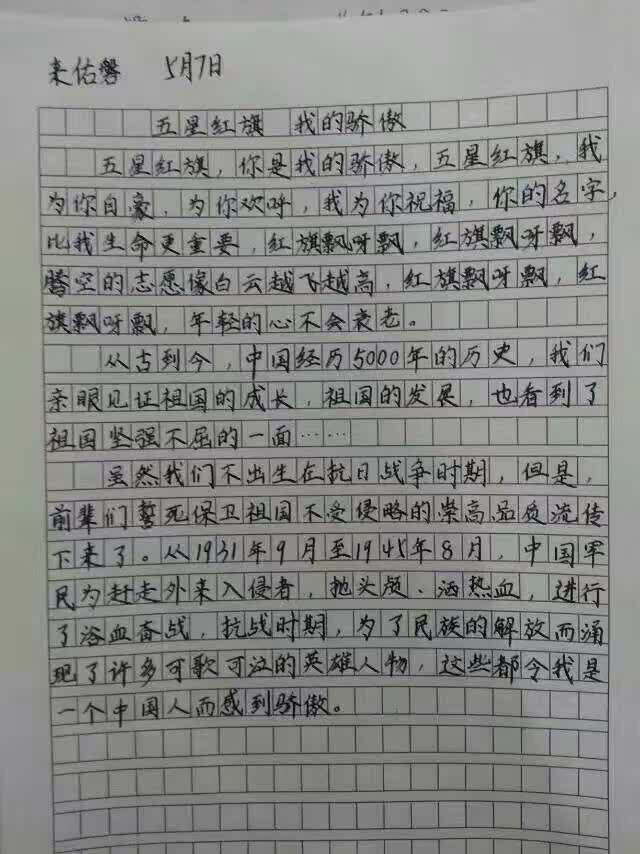 来佑磐 5月7日
五星红旗 我的骄傲
五星红旗,你是我的骄傲,五星红旗,我
为你自豪,为你欢呼,我为你祝福,你的名字,
比我生命更重要,红旗飘呀飘,红旗飘呀飘,
腾空的志愿像白云越飞越高,红旗飘呀飘,红
旗飘呀飘,年轻的心不会衰老。
从古到今,中国经历5000年的历史,我们
亲眼见证祖国的成长,祖国的发展,也看到了
祖国坚强不屈的一面……
虽然我们不出生在抗日战争时期,但是,
前辈们誓死保卫祖国不受侵略的崇高品质流传
下来了。从1931年9月至1945年8月,中国军
民为赶走外来入侵者,抛头颅、洒热血,进行
了浴血奋战,抗战时期,为了民族的解放而涌
现了许多可歌可泣的英雄人物,这些都令我是
一个中国人而感到骄傲。